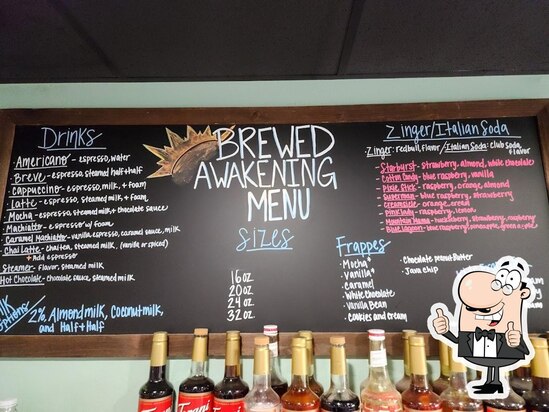 Drinks
Americano - espresso, water
Breve - espresso, steamed half + half
Cappuccino - espresso, milk, + foam
Latte - espresso, steamed milk, + foam
Mocha - espresso, steamed milk + chocolate sauce
Machiatto - espresso w/ foam
Caramel Machiatto - vanilla, espresso, caramel sauce, milk
Chai Latte - chai tea, steamed milk, (vanilla or spiced)
+ Add espresso
Steamer - flavor, steamed milk
Hot Chocolate - chocolate sauce, steamed milk
2% Almond milk, Coconut milk,
and Half + Half
BREWED
AWAKENING
MENU
Sizes
16 oz.
20 oz.
24 oz.
32 oz.
Zinger/Italian Soda
Zinger: redbull, flavor / Italian Soda: club soda
flavor
- Starburst - strawberry, almond, white chocolate
- Cotton Candy - blue raspberry, vanilla
- Pixie Stick - raspberry, orange, almond
- Superman - blue raspberry, strawberry
- Creamsicle - orange, cream
- Pink Lady - raspberry, lemon
- Mountain Mama - huckleberry, strawberry, raspberry
- Blue Lagoon - blue raspberry, pineapple, green apple
Frappes
- Mocha*
- Vanilla*
- Caramel
- White Chocolate
- Vanilla Bean
- Cookies and cream
- Chocolate Peanut Butter
- Java chip